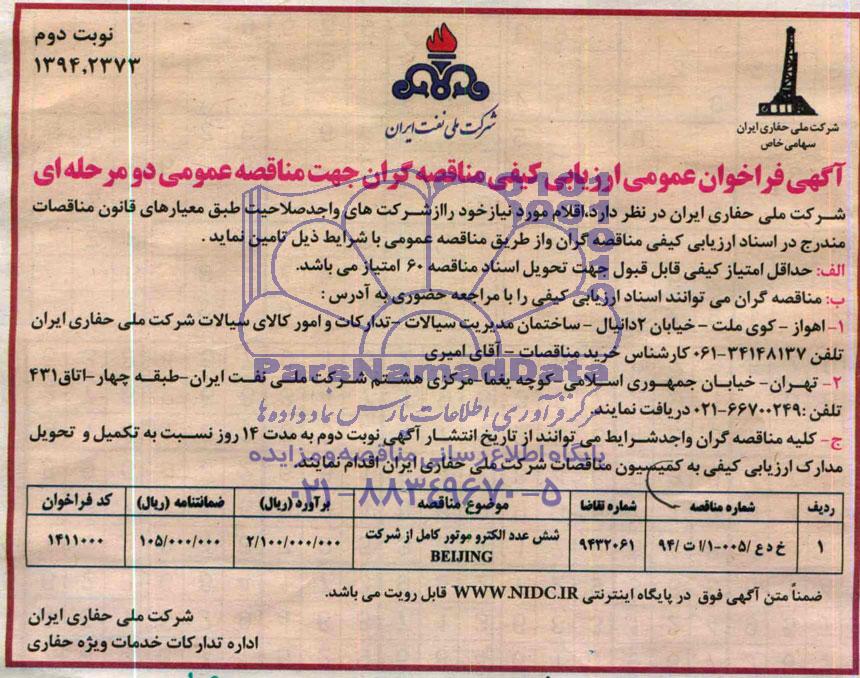 نوبت دوم
۱۳۹۴,۲۳۷۳
شرکت ملی نفت ایران
شرکت ملی حفاری ایران
سهامی خاص
آگهی فراخوان عمومی ارزیابی کیفی مناقصه گران جهت مناقصه عمومی دو مرحله ای
شرکت ملی حفاری ایران در نظر دارد،اقلام مورد نیاز خود رااز شرکت های واجدصلاحیت طبق معیارهای قانون مناقصات
مندرج در اسناد ارزیابی کیفی مناقصه گران واز طریق مناقصه عمومی با شرایط ذیل تامین نماید .
الف: حداقل امتیاز کیفی قابل قبول جهت تحویل اسناد مناقصه ۶۰ امتیاز می باشد.
ب: مناقصه گران می توانند اسناد ارزیابی کیفی را با مراجعه حضوری به آدرس :
۱- اهواز - کوی ملت - خیابان ۲دانیال - ساختمان مدیریت سیالات -تدارکات و امور کالای سیالات شرکت ملی حفاری ایران
تلفن ۳۴۱۴۸۱۳۷-۰۶۱ کارشناس خرید مناقصات - آقای امیری
ParsNamadData
۲- تهران- خیابان جمهوری اسلامی- کوچه یغما- مرکزی هشتم شرکت ملی نفت ایران-طبقه چهار-اتاق۴۳۱
تلفن :۶۶۷۰۰۲۴۹-۰۲۱ دریافت نمایند.
مرکز فرآوری اطلاعات پارس نماد داده ها
ج- کلیه مناقصه گران واجدشرایط می توانند از تاریخ انتشار آگهی نوبت دوم به مدت ۱۴ روز نسبت به تکمیل و تحویل
پایگاه اطلاع رسانی مناقصه و مزایده
مدارک ارزیابی کیفی به کمیسیون مناقصات شرکت ملی حفاری ایران اقدام نمایند.
۰۲۱-۸۸۳۴۹۶۷۰-۵
ردیف شماره مناقصه شماره تقاضا موضوع مناقصه برآورد (ریال) ضمانتنامه (ریال) کد فراخوان
۱ خ د ع /۰۰۵-۱/ا ت /۹۴ ۹۴۳۲۰۶۱ شش عدد الکترو موتور کامل از شرکت ۲/۱۰۰/۰۰۰/۰۰۰ ۱۰۵/۰۰۰/۰۰۰ ۱۴۱۱۰۰۰
BEIJING
ضمناً متن آگهی فوق در پایگاه اینترنتی WWW.NIDC.IR قابل رویت می باشد.
شرکت ملی حفاری ایران
اداره تدارکات خدمات ویژه حفاری